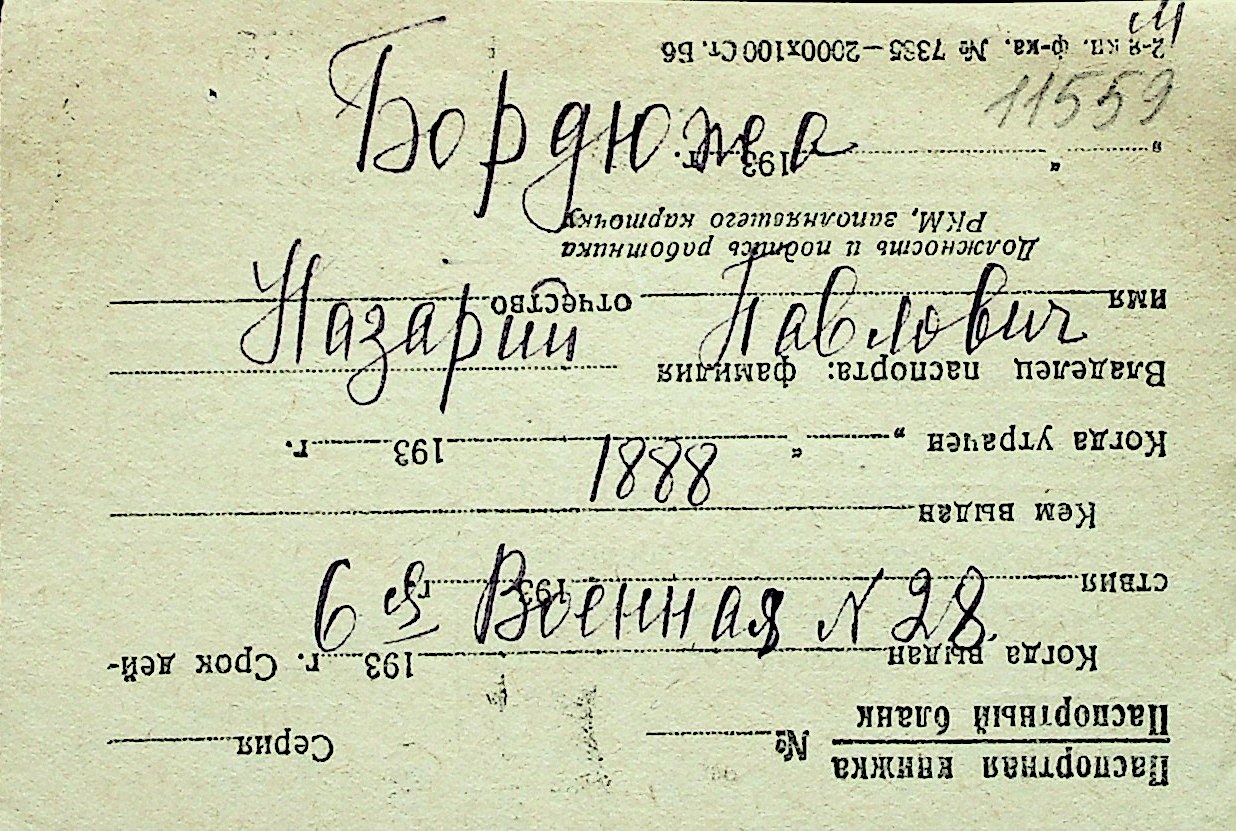 11559
Бордюжа
Назарий Павлович
1888
6 я Военная N 28.
Паспортная книжка
Паспортный бланк
№ Серия
Когда выдан 193 г. Срок дей-
ствия 193 г.
Кем выдан
Когда утрачен „ “ 193 г.
Владелец паспорта: фамилия
имя отчество
Должность и подпись работника
РКМ, заполнявшего карточку
„ “ 193 г.
2-я кп. ф-ка. № 7385—2000х100 Ст. Б6